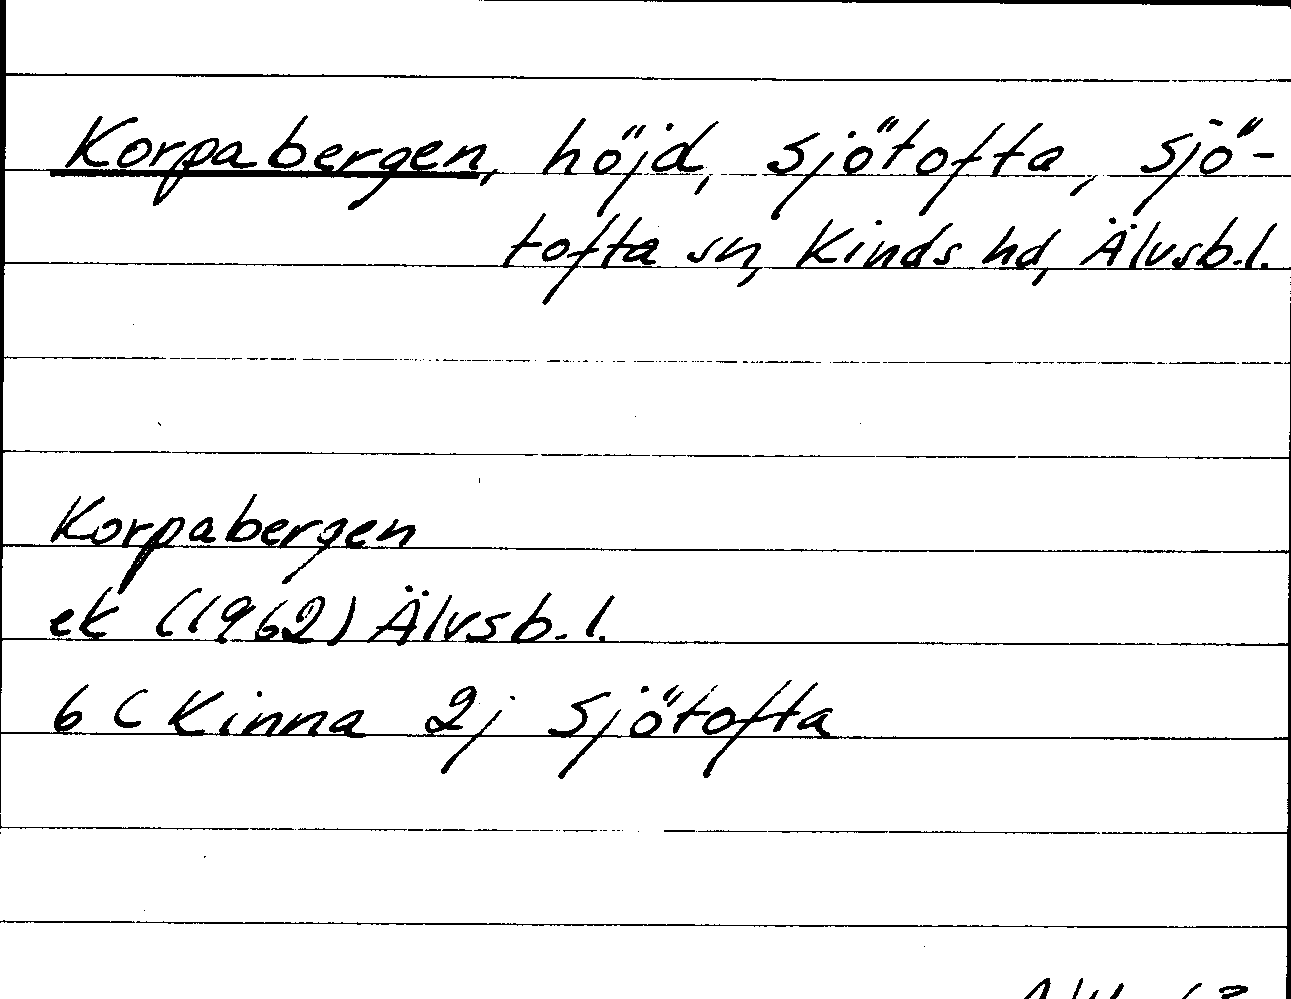 Korpabergen, höjd, Sjötofta, Sjö-
tofta sn, Kinds hd, Älvsb.l.
Korpabergen
ek (1962) Älvsb.l.
6 C Kinna 2j Sjötofta